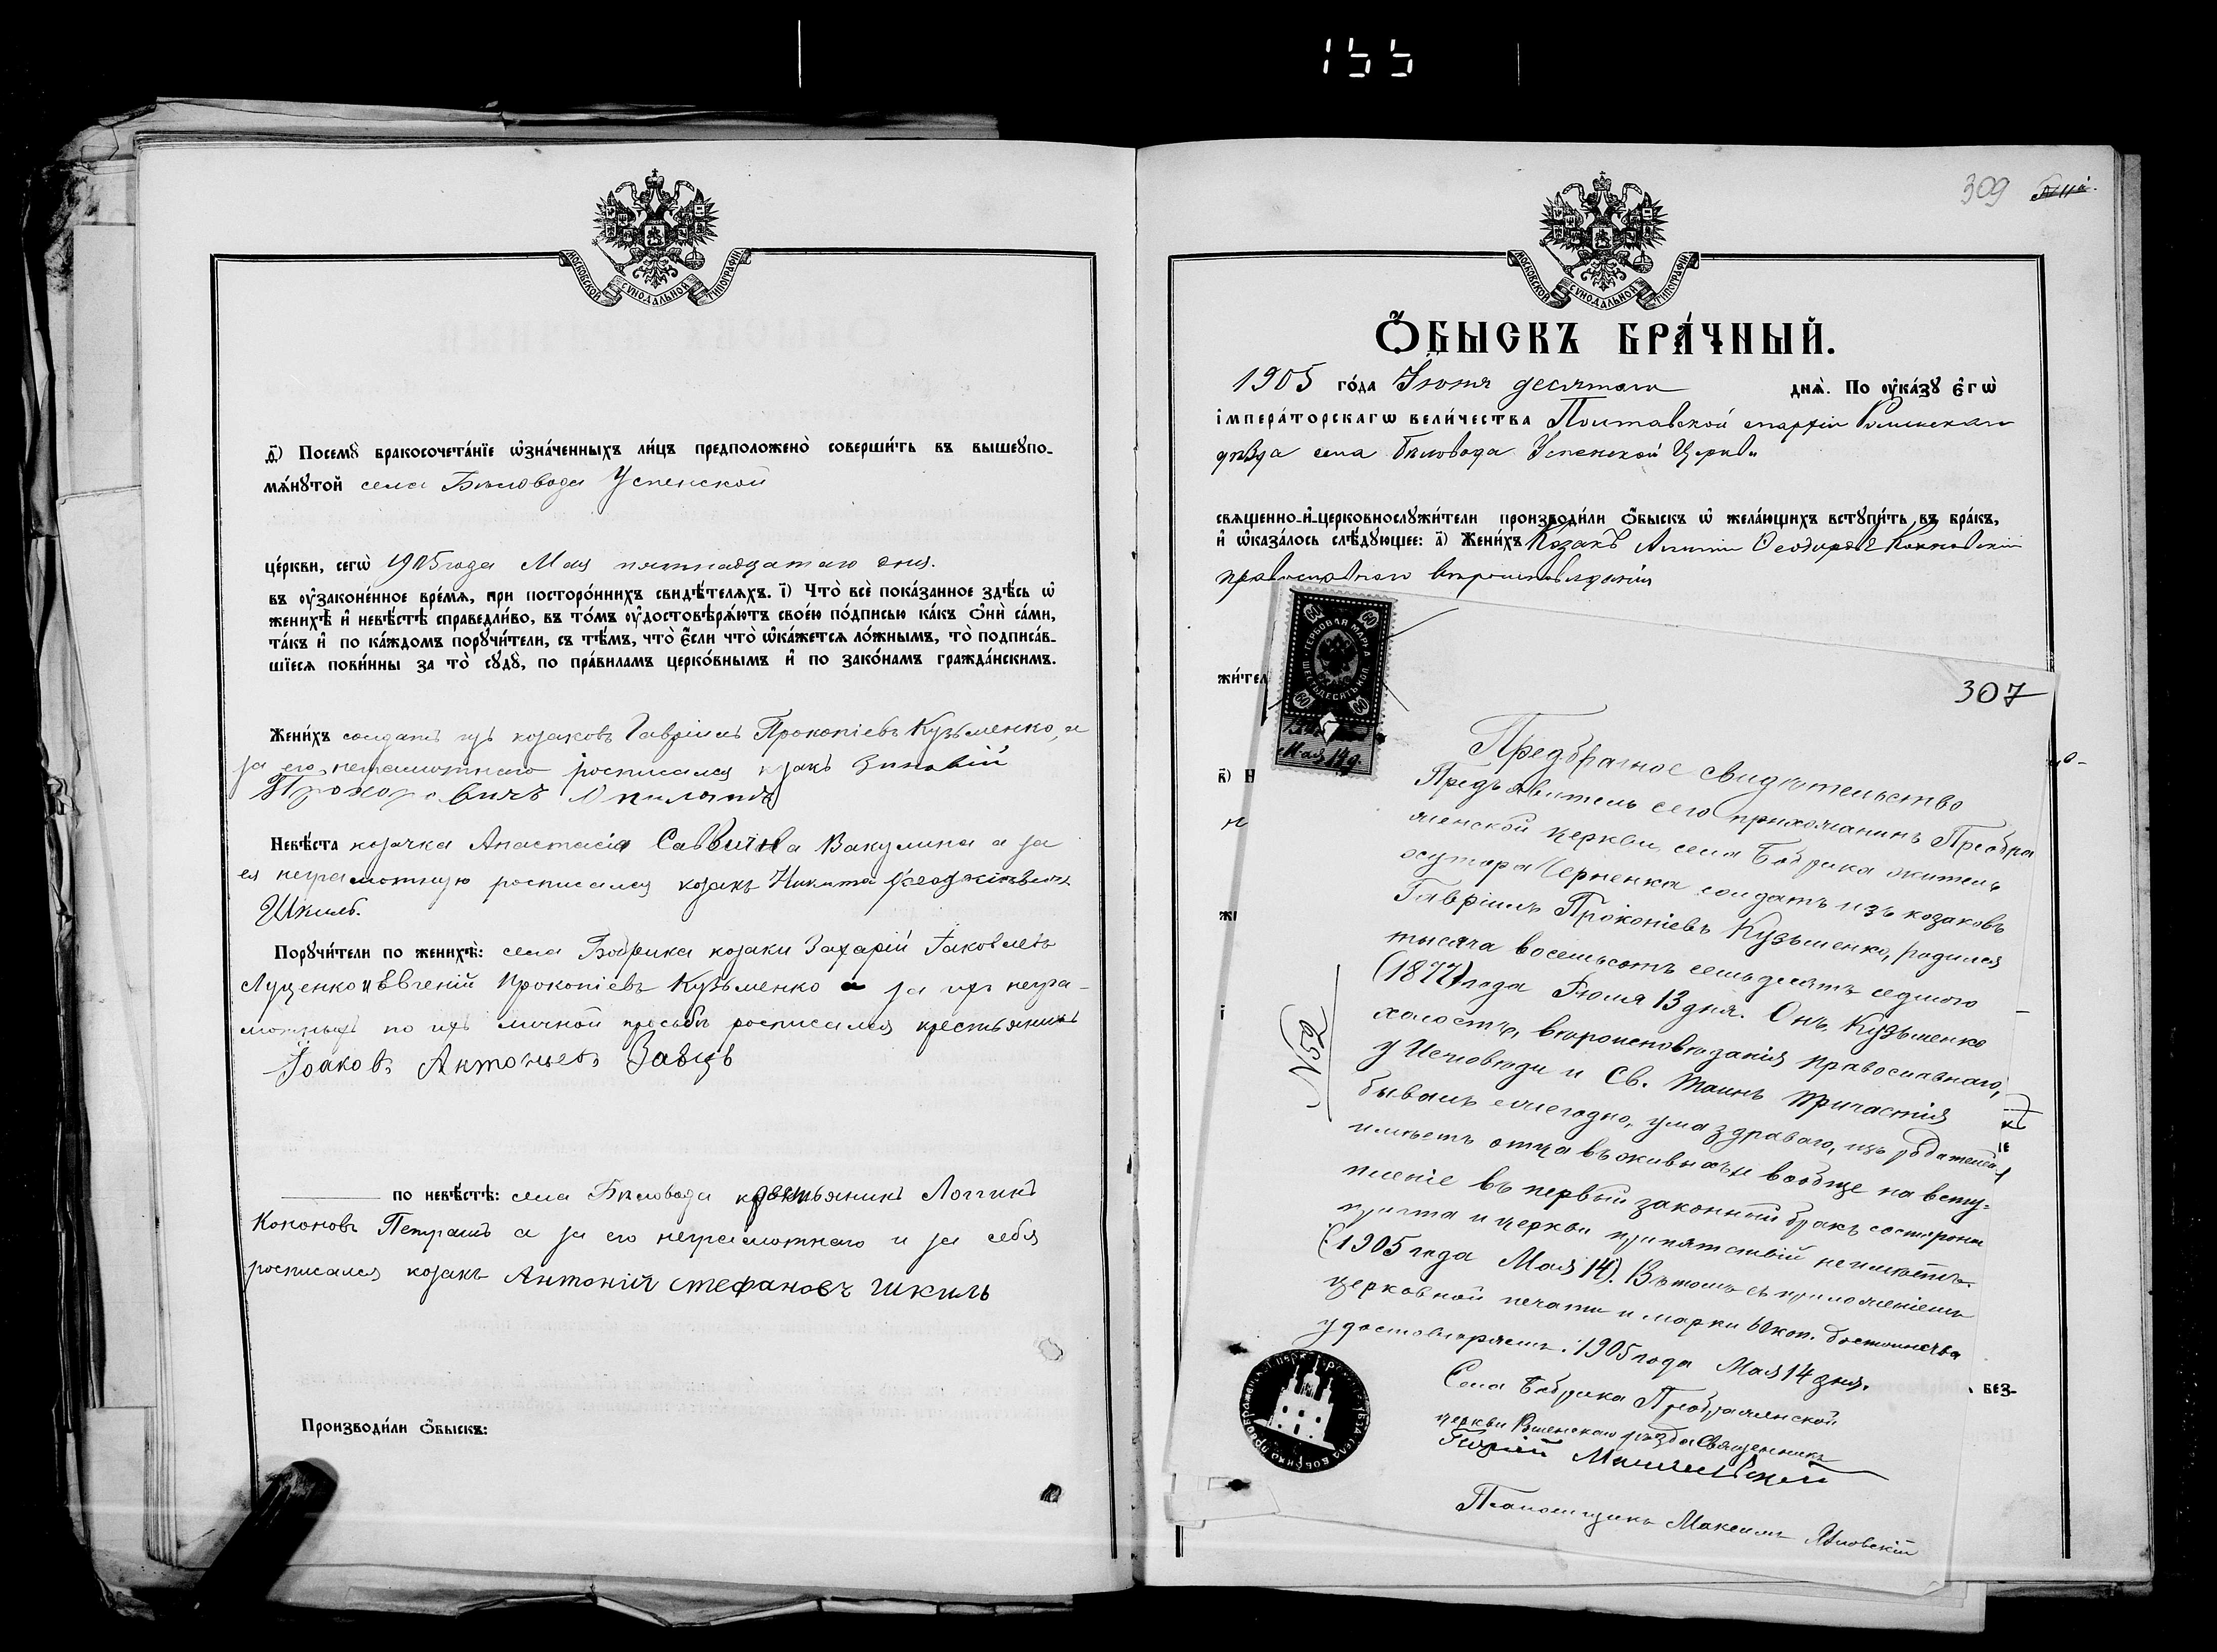 155
МОСКОВСКОЙ СѴНОДАЛЬНОЙ ТИПОГРАФІИ
д҃) Посемꙋ̀ бракосочета́нїе ѡ҆зна́ченныхъ ли́цъ предположено̀ соверши́ть въ вышеꙋпо-
мѧ́нꙋтой села Бѣловода Успенской
це́ркви, сегѡ̀ 1905 года Мая пятнадцатаго дня.
въ ᲂу҆зако́ненное вре́мѧ, при посторо́ннихъ свидѣ́телѧхъ. і҃) Что̀ всѐ пока́занное здѣ́сь ѡ҆
женихѣ̀ и҆ невѣ́стѣ справедли́во, въ то́мъ ᲂу҆достовѣрѧ́ютъ свое́ю по́дписью ка́къ ѻ҆нѝ са́ми,
та́къ и҆ по ка́ждомъ порꙋчи́тели, съ тѣ́мъ, что̀ є҆́сли что̀ ѡ҆ка́жетсѧ ло́жнымъ, то̀ подписа́в-
шїесѧ пови́нны за то̀ сꙋдꙋ̀, по пра́виламъ церко́внымъ и҆ по зако́намъ гражда́нскимъ.
Жени́хъ солдатъ изъ козаковъ Гавріилъ Прокопіевъ Кузьменко, а
за его неграмотнаго росписался козакъ Зиновій
Прохоровичъ
Невѣ́ста козачка Анастасія Саввична Вакулина а за
ея неграмотную росписался козакъ Никита
Шкиль.
Порꙋчи́тели по женихѣ̀: села Бобрика козаки Захарій Іаковлевъ
Луценко и Евгеній Прокопіевъ Кузьменко а за ихъ негра-
мотныхъ по ихъ личной просьбѣ росписался крестьянинъ
Іоаковъ Антоньевъ Завцѣ
по невѣ́стѣ: села Бѣловода крестьянинъ Логгинъ
Кононовъ Петрашъ а за его неграмотнаго и за себя
росписался козакъ Антоній Стефановъ Шкиль
Производи́ли ѻ҆́быскъ:
309
МОСКОВСКОЙ СѴНОДАЛЬНОЙ ТИПОГРАФІИ
Ѻ҆́БЫСКЪ БРА́ЧНЫЙ.
1905 го́да Іюня десятаго днѧ̀. По ᲂу҆ка́зꙋ є҆гѡ̀
і҆мпера́торскагѡ вели́чества Полтавской епархіи Роменскаго
уѣзда села Бѣловода Успенской Церкви
свѧщенно-и҆-церковнослꙋжи́тели производи́ли ѻ҆́быскъ ѡ҆ жела́ющихъ встꙋпи́ть въ бра́къ,
и҆ ѡ҆каза́лось слѣ́дꙋющее: а҃) Жени́хъ Козакъ Ѳеодоровъ
православнаго вѣроисповѣданія
жи́тел
ГЕРБОВАЯ МАРКА ШЕСТЬДЕСЯТЪ КОП.
60
Мая 14д.
307
Предбрачное свидѣтельство
Предъявитель сего прихожанинъ Преобра
женской церкви села Бобрика житель
хутора Черненка солдатъ изъ козаковъ
Гавріилъ Прокопіевъ Кузьменко, родился
тысяча восемьсотъ семьдесятъ седмого
(1877) года Іюля 13 дня. Онъ, Кузьменко
холостъ, вѣроисповѣданія православнаго,
у Исповѣди и Св. Таинъ Причастія
бывалъ ежегодно, ума здраваго, изъ родителей
имѣетъ отца въ живыхъ и вообще на всту-
пленіе въ первый законный бракъ со стороны
причта и церкви препятствій неимѣетъ.
(1905 года Мая 14). Въ томъ съ приложеніемъ
церковной печати и марки 60 коп. достоинства
удостовѣряемъ. 1905 года Мая 14 дня.
№ 52
Села Бобрика Преображенской
церкви Роменскаго уѣзда Священникъ
Псаломщикъ Максимъ Яновскій
в҃) Н
жи
без-